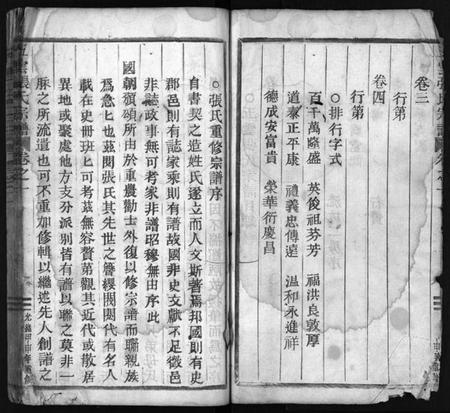 卷三
行第
卷四
行第
○排行字式
百千萬隆盛 英俊祖芬芳 福洪良敦厚
道泰正平康 禮義忠傳遠 溫和永進祥
德成安富貴 榮華衍慶昌
○張氏重修宗譜序
自書契之造姓氏遂立而人文斯著焉邦國則有史
郡邑則有誌家乘則有譜故國非史文獻不足徵邑
非誌政事無可考家非譜昭穆無由序此
國朝頒碩所由於重農勸士外復以修宗譜而聯親族
為急也茲閱張氏其先世之簪纓閥閱代有名人
載在史冊班班可考茲無容贅第觀其近代或散居
異地或聚處他方支分派別皆有譜以聯之莫非一
脈之所流遺也可不重加修輯以繼述先人創譜之
張氏宗譜 卷之一